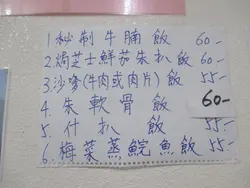 1.秘制牛腩飯 60-
2.焗芝士鮮茄朱扒飯 60-
3.沙嗲(牛肉或肉片)飯 55-
4.朱軟骨飯 60-
5.什扒飯 55-
6.梅菜蒸鯇魚飯 55-